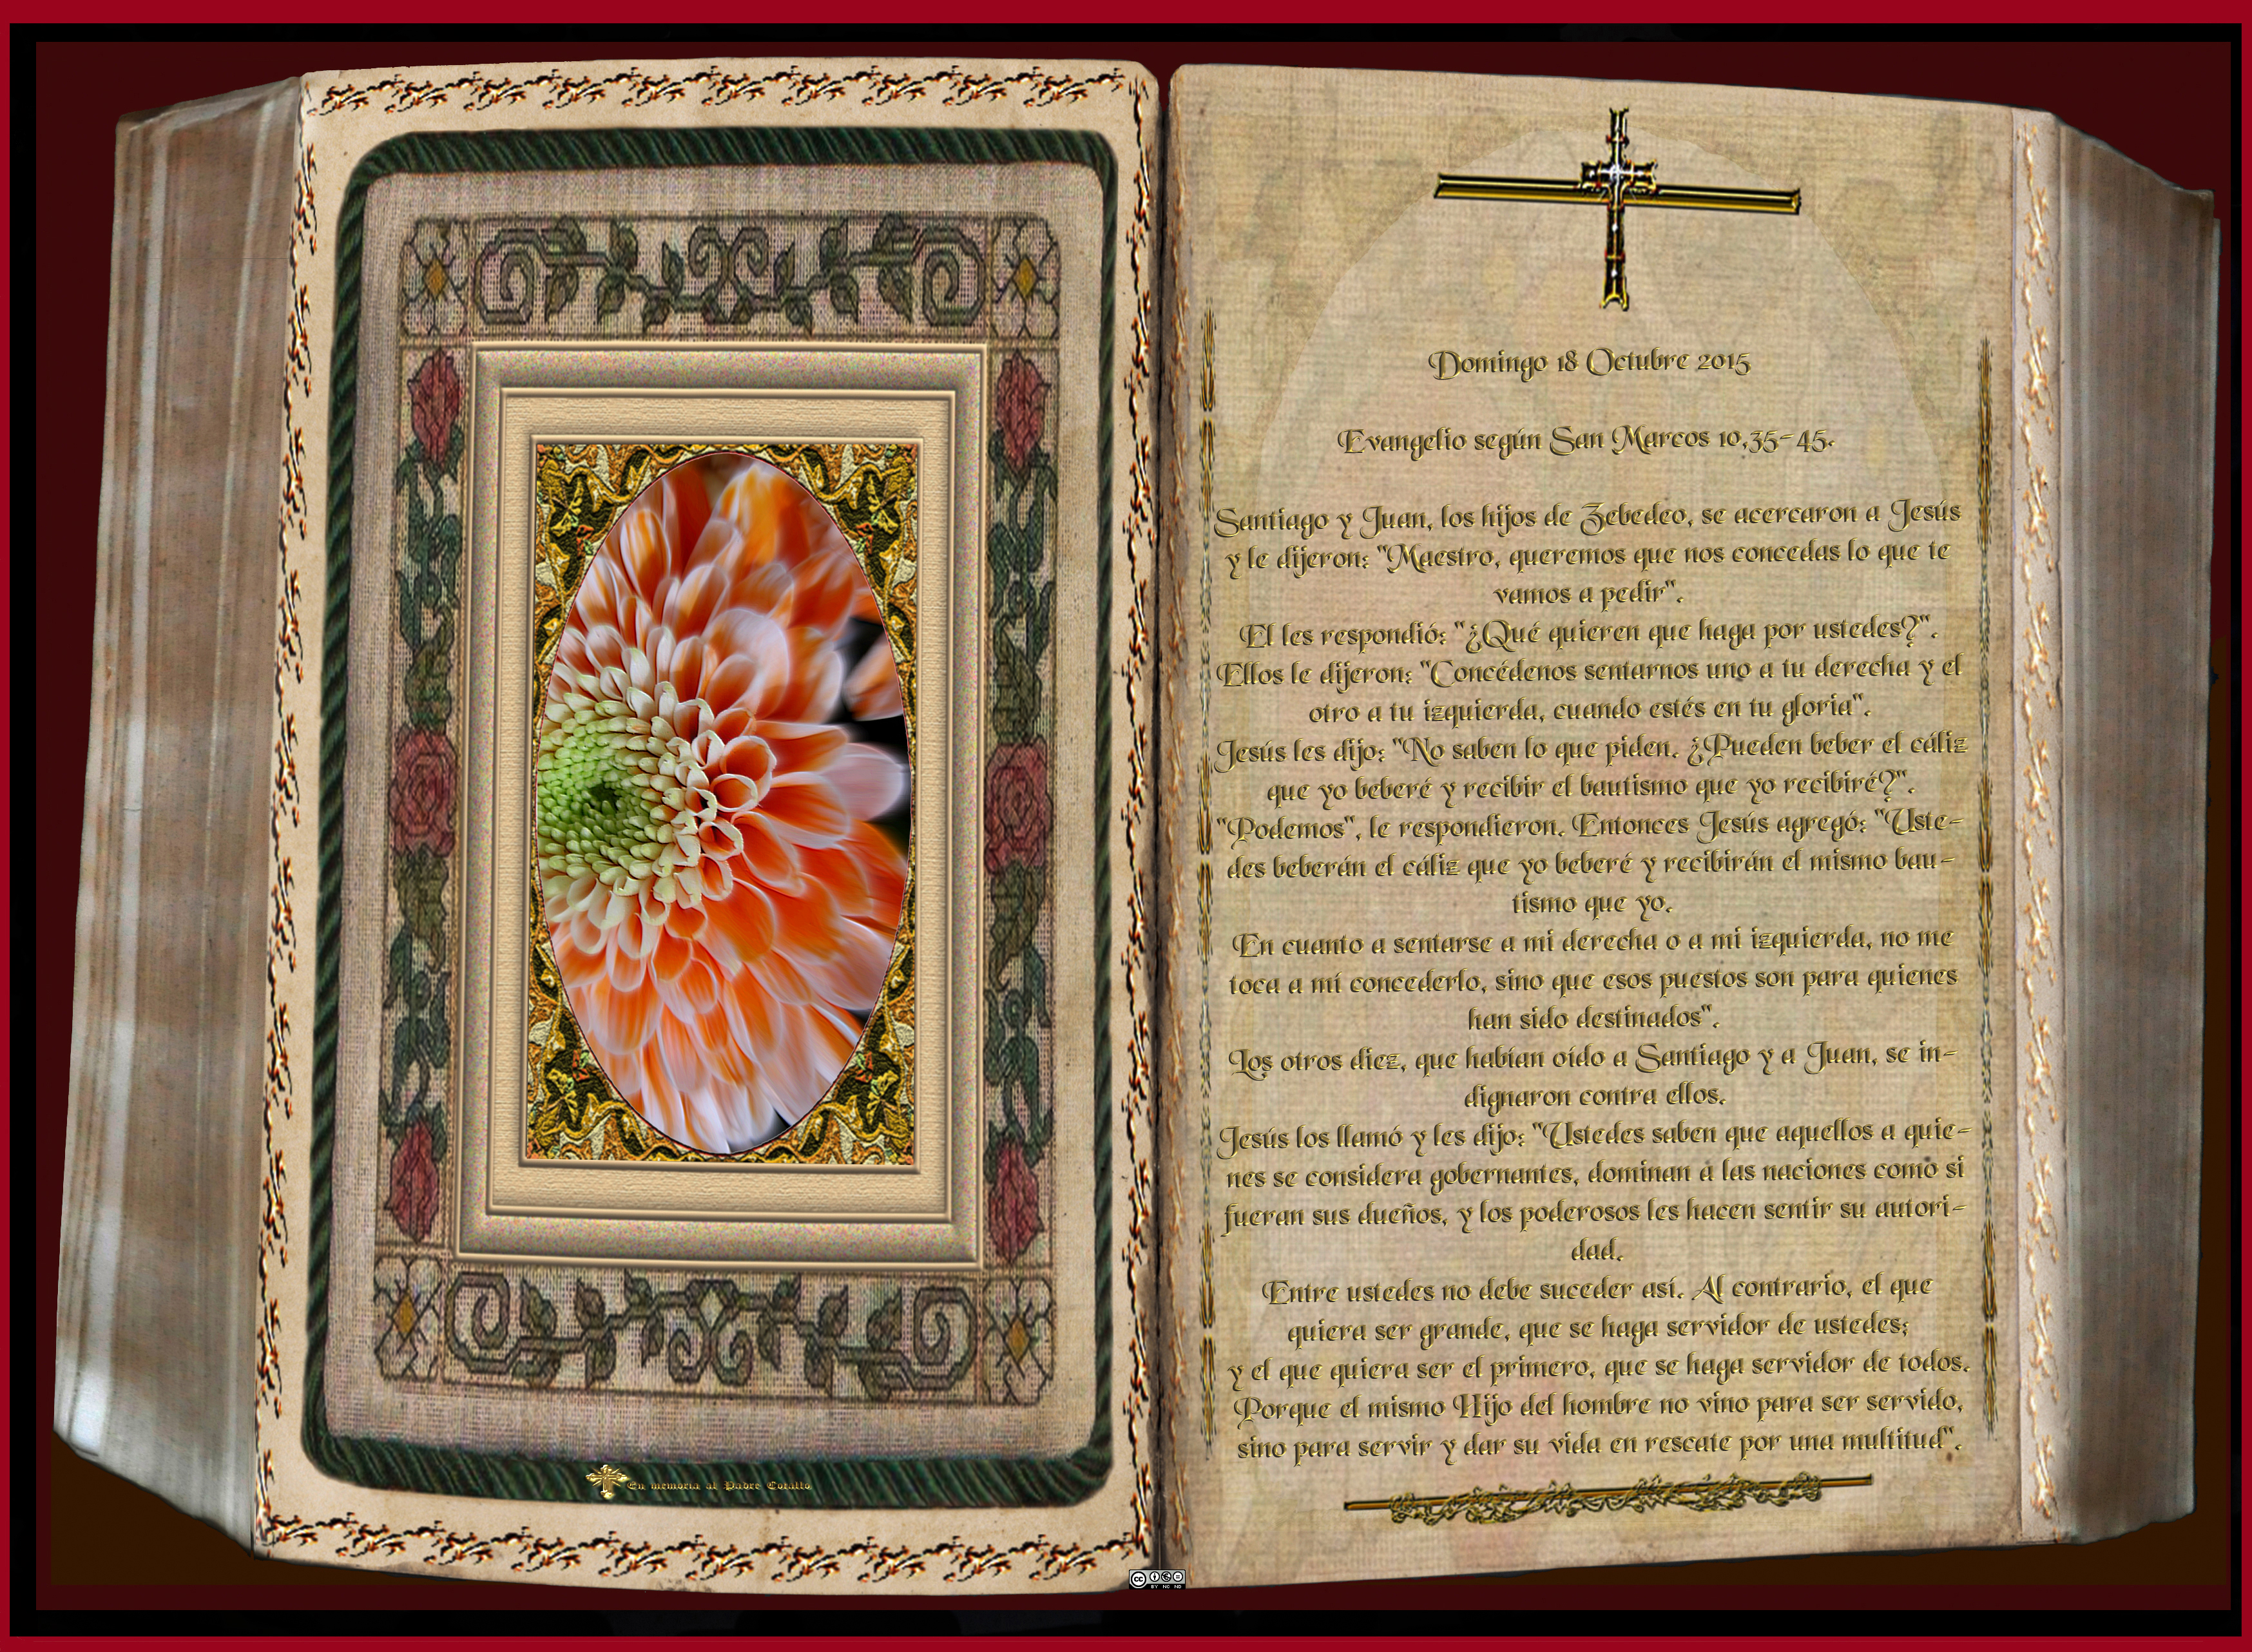 En memoria al Padre Cotallo
Domingo 18 Octubre 2015
Evangelio según San Marcos 10,35-45.
Santiago y Juan, los hijos de Zebedeo, se acercaron a Jesús
y le dijeron: "Maestro, queremos que nos concedas lo que te
vamos a pedir".
El les respondió: "¿Qué quieren que haga por ustedes?".
Ellos le dijeron: "Concédenos sentarnos uno a tu derecha y el
otro a tu izquierda, cuando estés en tu gloria".
Jesús les dijo: "No saben lo que piden. ¿Pueden beber el cáliz
que yo beberé y recibir el bautismo que yo recibiré?".
"Podemos", le respondieron. Entonces Jesús agregó: "Uste-
des beberán el cáliz que yo beberé y recibirán el mismo bau-
tismo que yo.
En cuanto a sentarse a mi derecha o a mi izquierda, no me
toca a mí concederlo, sino que esos puestos son para quienes
han sido destinados".
Los otros diez, que habían oído a Santiago y a Juan, se in-
dignaron contra ellos.
Jesús los llamó y les dijo: "Ustedes saben que aquellos a quie-
nes se considera gobernantes, dominan a las naciones como si
fueran sus dueños, y los poderosos les hacen sentir su autori-
dad.
Entre ustedes no debe suceder así. Al contrario, el que
quiera ser grande, que se haga servidor de ustedes;
y el que quiera ser el primero, que se haga servidor de todos.
Porque el mismo Hijo del hombre no vino para ser servido,
sino para servir y dar su vida en rescate por una multitud".
CC BY NC ND